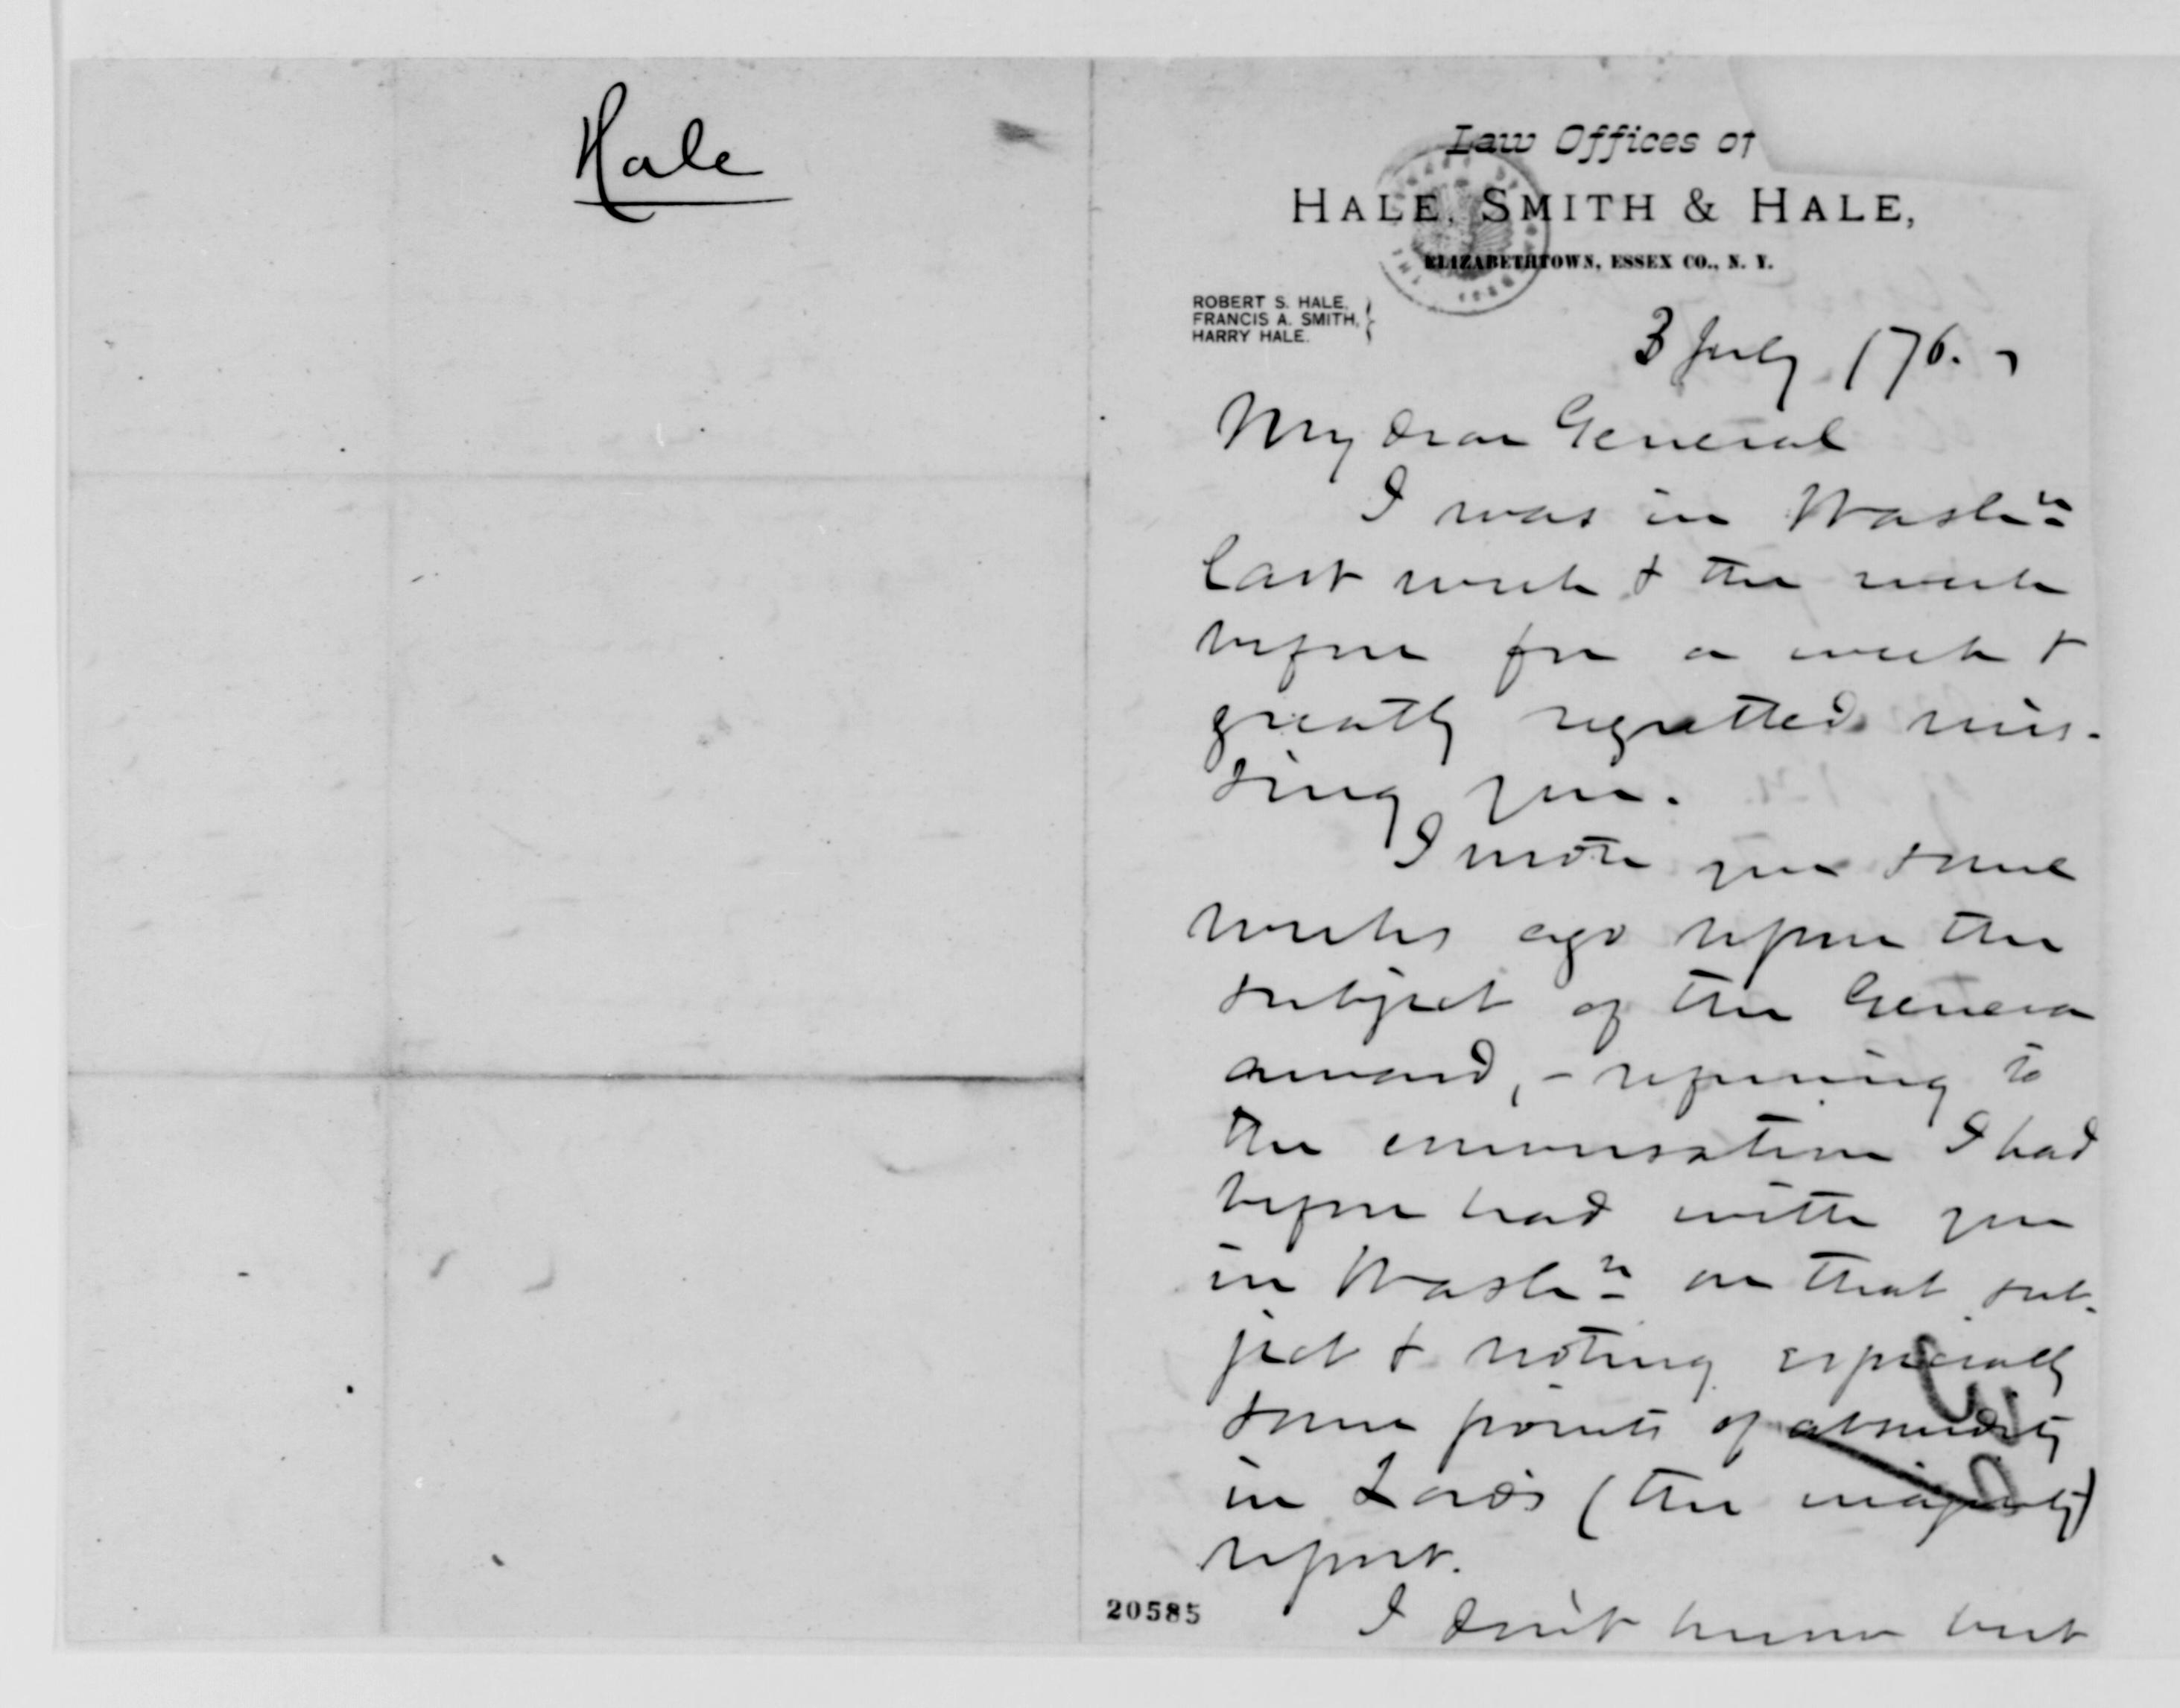 Hale
Law Offices of
HALE, SMITH & HALE,
ELIZABETHTOWN, ESSEX CO., N. Y.
ROBERT S. HALE,
FRANCIS A. SMITH,
HARRY HALE.
3 July 1876.
My dear General
I was in Washn
last week & the week
before for a week &
greatly regretted mis-
sing you.
I wrote you some
weeks ago upon the
subject of the Geneva
award, - referring to
the conversation I had
before had with you
in Washn on that sub-
ject & noting especially
some points of absurdity
in Lord's (the majority)
report.
I don't know but
20585